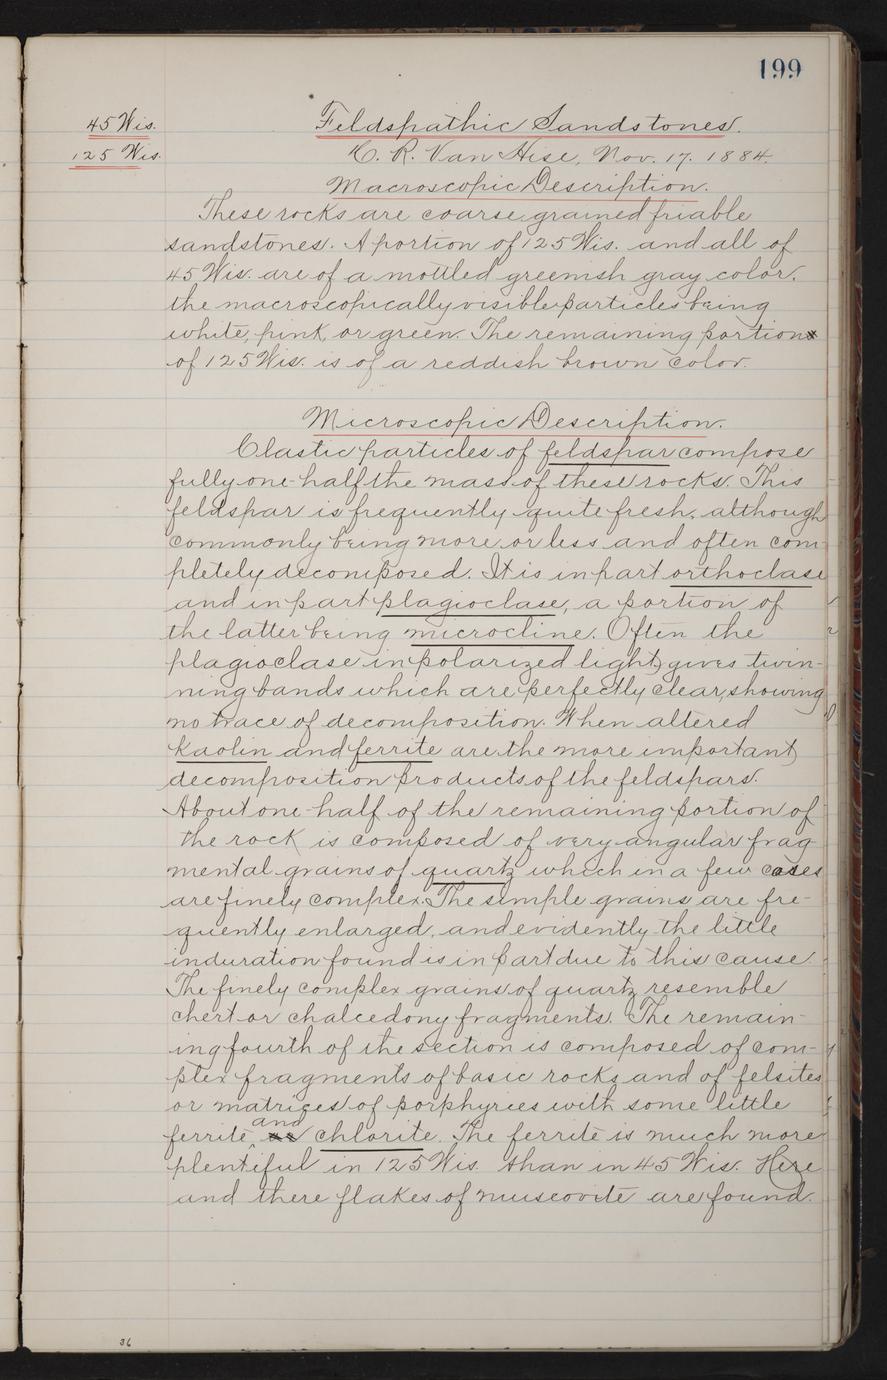 199
45 Wis.
125 Wis.
Feldspathic Sandstones.
C. R. Van Hise, Nov. 17. 1884.
Macroscopic Description.
These rocks are coarse, grained friable
sandstones. A portion of 125 Wis. and all of
45 Wis. are of a mottled greenish gray color.
the macroscopically visible particles being
white, pink, or green. The remaining portion
of 125 Wis. is of a reddish brown color.
Microscopic Description.
Clastic particles of feldspar compose
fully one-half the mass of these rocks. This
feldspar is frequently quite fresh, although
commonly being more or less and often com-
pletely decomposed. It is in part orthoclase
and in part plagioclase, a portion of
the latter being microcline. Often the
plagioclase in polarized light, gives twin-
ning bands which are perfectly clear, showing
no trace of decomposition. When altered
kaolin and ferrite are the more important
decomposition products of the feldspars.
About one-half of the remaining portion of
the rock is composed of very angular frag-
mental grains of quartz which in a few cases
are finely complex. The simple grains are fre-
quently enlarged, and evidently the little
induration found is in part due to this cause.
The finely complex grains of quartz resemble
chert or chalcedony fragments. The remain-
ing fourth of the section is composed of com-
plex fragments of basic rocks and of felsites
or matrices of porphyries with some little
ferrite, and chlorite. The ferrite is much more
plentiful in 125 Wis. than in 45 Wis. Here
and there flakes of muscovite are found.
36